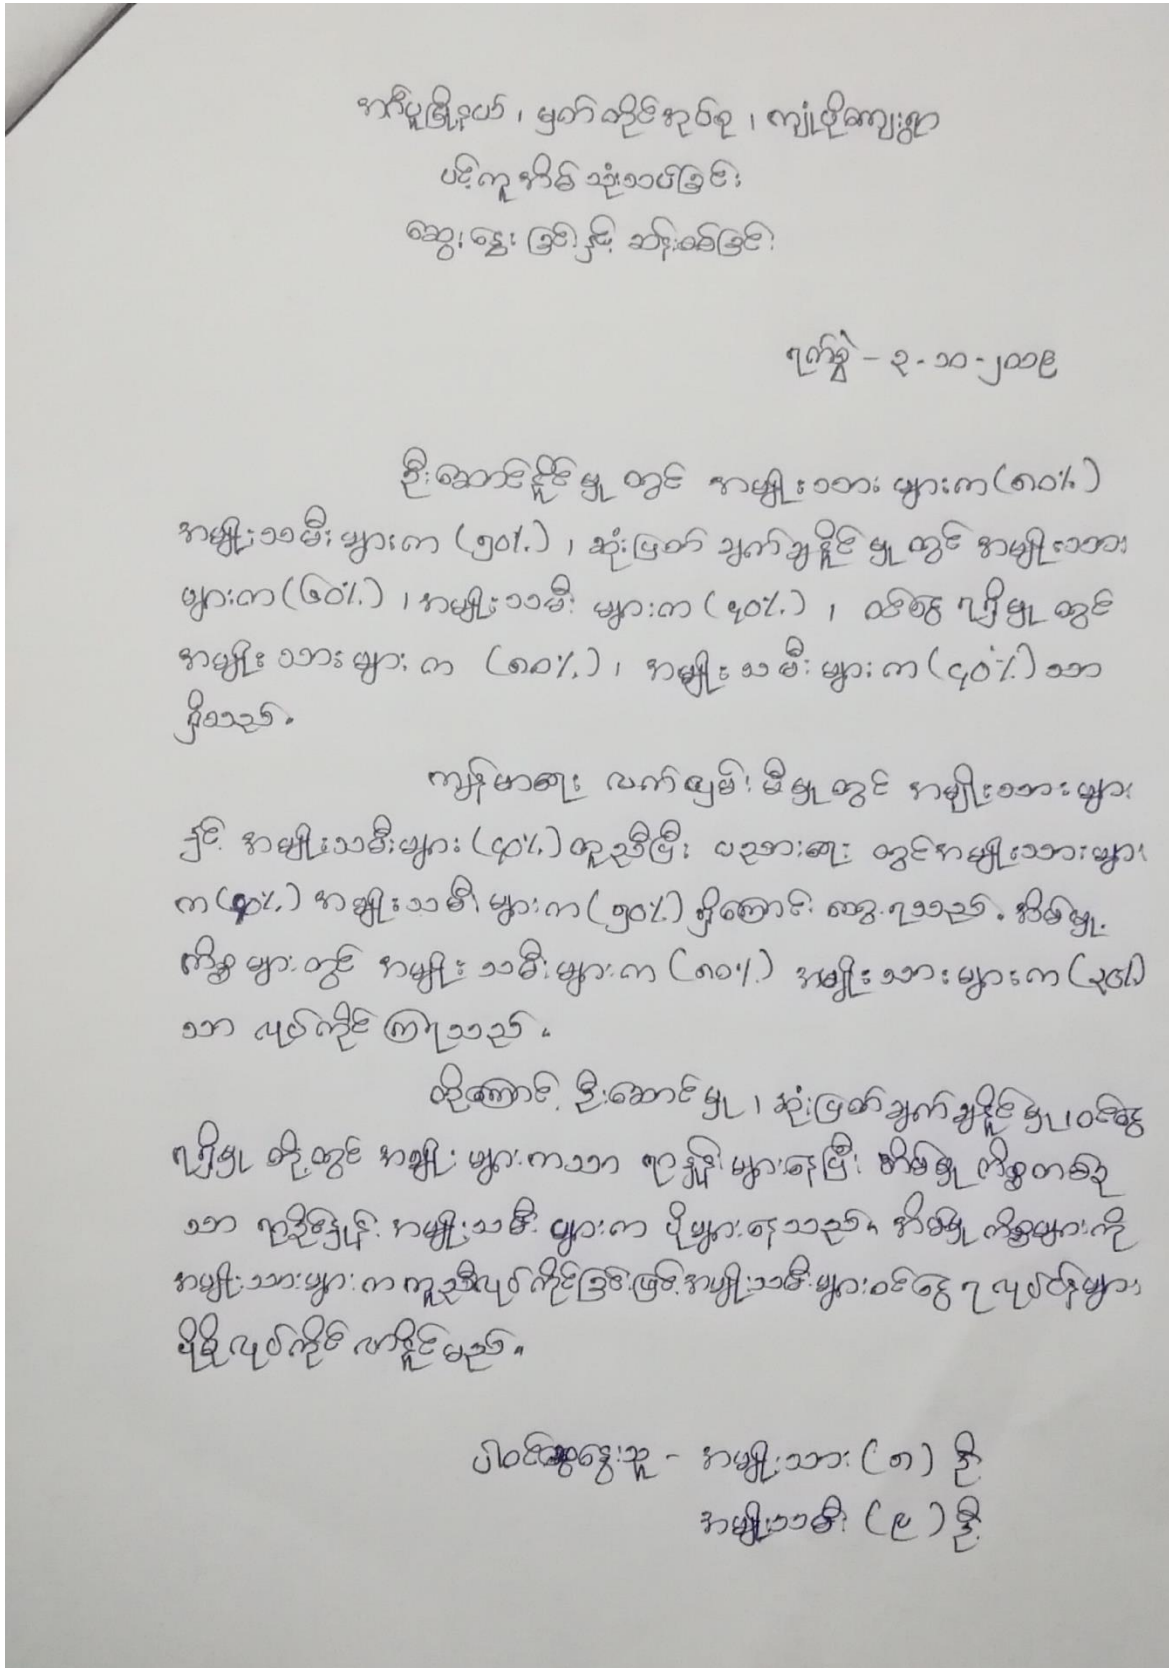 အင်္ဂပူမြို့နယ်၊ မှတ်ကိုင်အုပ်စု၊ ကျုံပိုကျေးရွာ
ပင့်ကူအိမ် သုံးသပ်ခြင်း
ဆွေးနွေးခြင်းနှင့် ဆန်းစစ်ခြင်း
ရက်စွဲ - ၃-၁၀-၂၀၁၉
ဦးဆောင်နိူင်မှု တွင် အမျိုးသားများက (၈၀%)
အမျိုးသမီးများက (၅၀%)၊ ဆုံးဖြတ်ချက်ချနိူင်မှုတွင် အမျိုးသား
များက (၆၀%)၊ အမျိုးသမီးများက (၄၀%)၊ ဝင်ငွေရရှိမှုတွင်
အမျိုးသားများက (၈၀%)၊ အမျိုးသမီးများက (၄၀%) သာ
ရှိသည်။
ကျန်မာရေး လက်လှမ်းမီမှုတွင် အမျိုးသားများ
နှင့် အမျိုးသမီးများ (၄၀%) တူညီပြီး ပညာရေး တွင်အမျိုးသားများ
က (၄၀%) အမျိုးသမီးများက (၅၀%) ရှိကြောင်း တွေ့ရသည်။ အိမ်မှု
ကိစ္စများတွင် အမျိုးသမီးများက (၈၀%) အမျိုးသားများက (၃၀%)
သာ လုပ်ကိုင်ကြရသည်။
ထို့ကြောင့် ဦးဆောင်မှု၊ ဆုံးဖြတ်ချက်ချနိူင်မှု၊ ဝင်ငွေ
ရရှိမှု တို့တွင် အမျိုးများကသာ ရာနှုန်းများနေပြီး အိမ်မှုကိစ္စတစ်ခု
သာ ရာခိုင်နှုန်း အမျိုးသမီးများက ပိုများနေသည်။ အိမ်မှုကိစ္စများကို
အမျိုးသားများက ကူညီလုပ်ကိုင်ခြင်းဖြင့် အမျိုးသမီးများဝင်ငွေရလုပ်ငန်းများ
ပိုမိုလုပ်ကိုင်လာနိူင်မည်။
ပါဝင်ဆွေးနွေးသူ - အမျိုးသား (၈) ဦး
အမျိုးသမီး (၉) ဦး